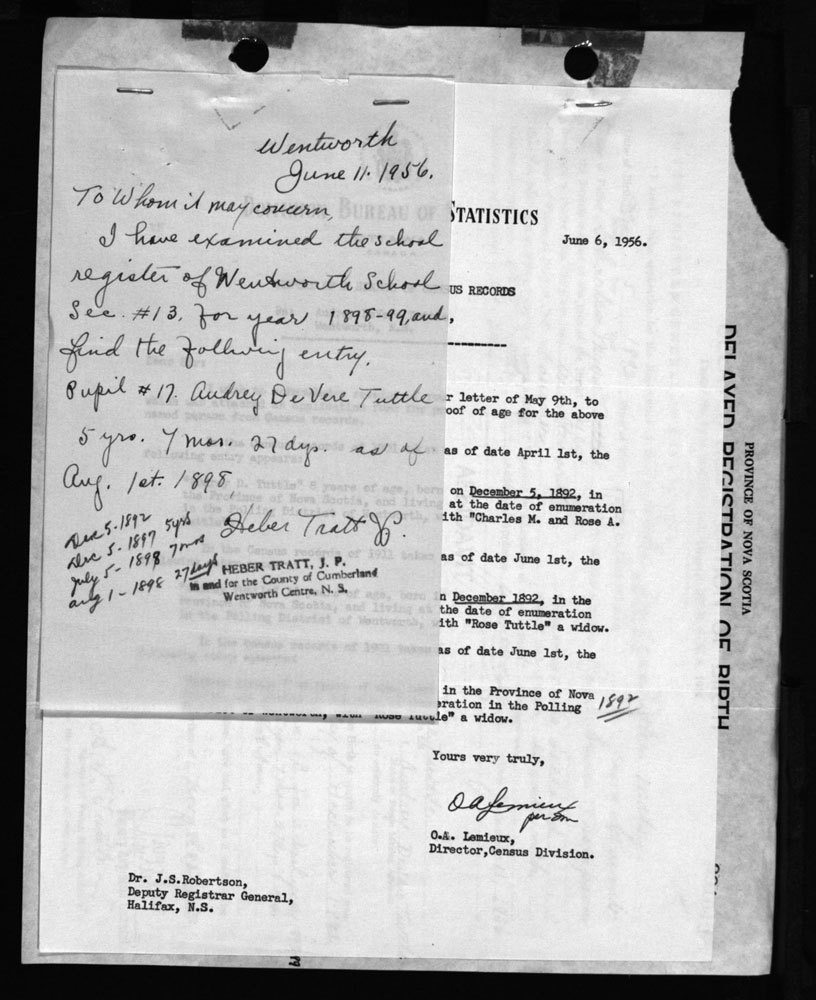 Wentworth
June 11. 1956.
To Whom it may concern,
I have examined the school
register of Wentworth School
Sec. #13, for year 1898-99, and,
find the following entry.
Pupil #17. Audrey DeVere Tuttle
5 yrs. 7 mos. 27 dys. as of
Aug. 1st. 1898
Dec 5-1892
Dec 5-1897 5yrs
July 5-1898 7mos
aug 1-1898 27days
Heber Tratt JP.
HEBER TRATT, J. P.
in and for the County of Cumberland
Wentworth Centre, N. S.
BUREAU OF STATISTICS
June 6, 1956.
US RECORDS
r letter of May 9th, to
oof of age for the above
as of date April 1st, the
D. Tuttle" 8 years of age, born on December 5, 1892, in
the Province of Nova Scotia, and living at the date of enumeration
in the Polling District of with "Charles M. and Rose A.
as of date June 1st, the
of age, born in December 1892, in the
and living at the date of enumeration
in the Polling District of Wentworth, with "Rose Tuttle" a widow.
In the census records of 1921 taken as of date June 1st, the
in the Province of Nova
eration in the Polling 1892
of Wentworth, with "Rose Tuttle" a widow.
Yours very truly,
O A Lemieux
per
O.A. Lemieux,
Director,Census Division.
Dr. J.S.Robertson,
Deputy Registrar General,
Halifax, N.S.
PROVINCE OF NOVA SCOTIA
DELAYED REGISTRATION OF BIRTH